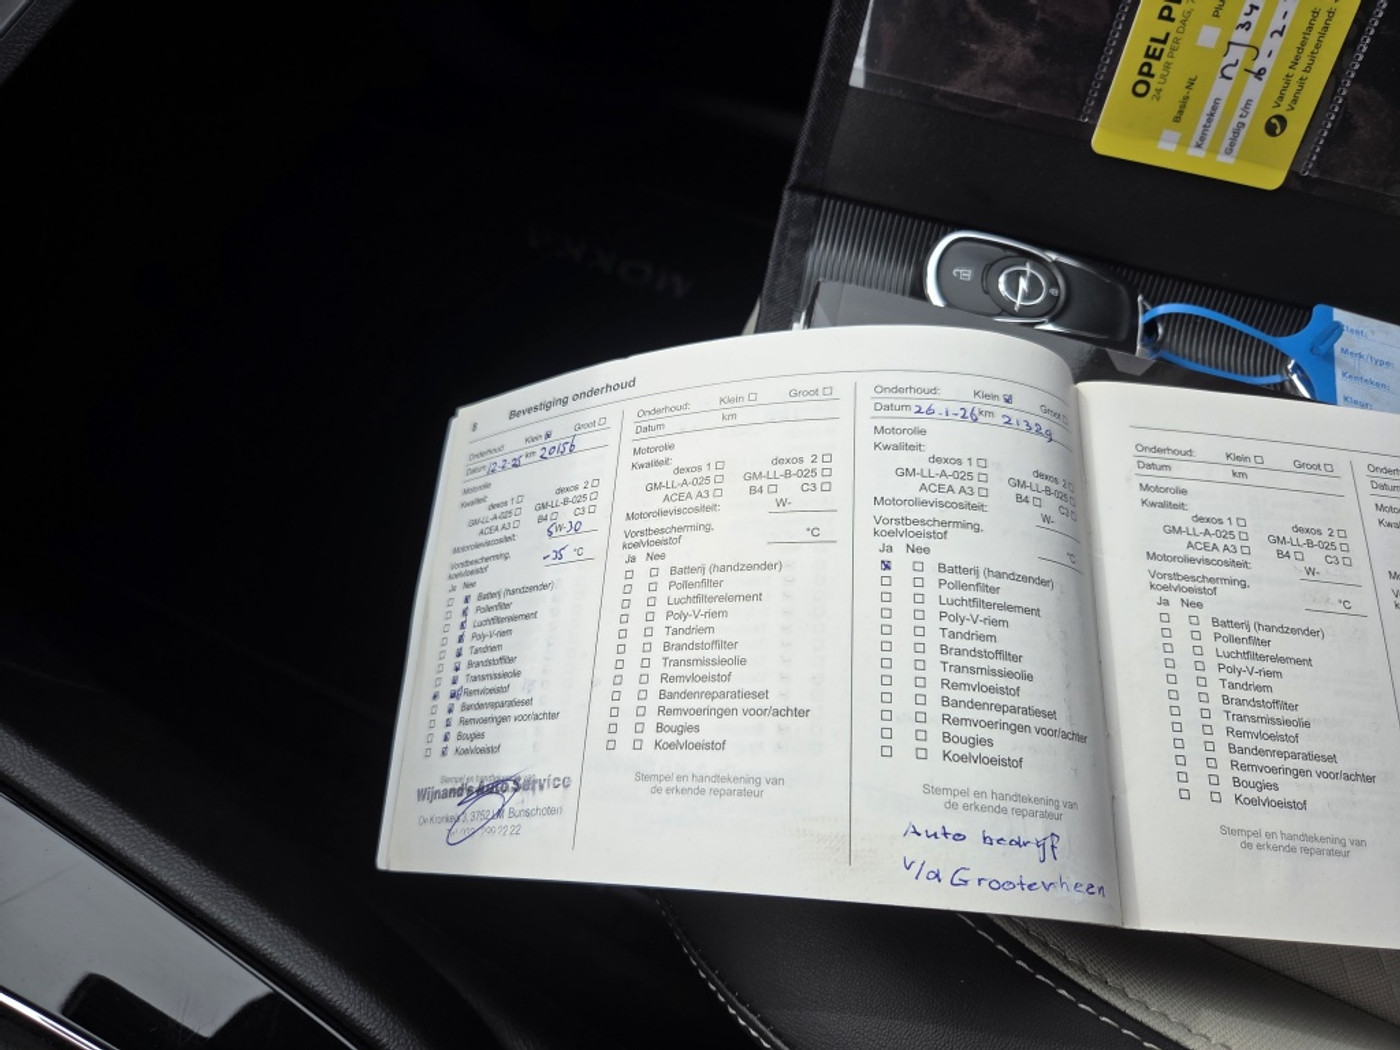 OPEL
24 UUR PER DAG, 7
Basis-NL
Kenteken
Geldig t/m 16-2-
Vanuit Nederland:
Vanuit buitenland:
MOKKA
Merk/type:
Kenteken:
Kleur:
8 Bevestiging onderhoud
Onderhoud: Klein Groot
Datum 12-2-25 km 20156
Motorolie
Kwaliteit:
dexos 1 dexos 2
GM-LL-A-025 GM-LL-B-025
ACEA A3 B4 C3
Motorolieviscositeit: 5W-30
Vorstbescherming,
koelvloeistof -35 °C
Ja Nee
Batterij (handzender)
Pollenfilter
Luchtfilterelement
Poly-V-riem
Tandriem
Brandstoffilter
Transmissieolie
Remvloeistof
Bandenreparatieset
Remvoeringen voor/achter
Bougies
Koelvloeistof
Wijnand's Auto Service
Bunschoten
Onderhoud: Klein Groot
Datum km
Motorolie
Kwaliteit:
dexos 1 dexos 2
GM-LL-A-025 GM-LL-B-025
ACEA A3 B4 C3
Motorolieviscositeit: W-
Vorstbescherming,
koelvloeistof °C
Ja Nee
Batterij (handzender)
Pollenfilter
Luchtfilterelement
Poly-V-riem
Tandriem
Brandstoffilter
Transmissieolie
Remvloeistof
Bandenreparatieset
Remvoeringen voor/achter
Bougies
Koelvloeistof
Stempel en handtekening van
de erkende reparateur
Onderhoud: Klein Groot
Datum 26-1-26 km 21329
Motorolie
Kwaliteit:
dexos 1 dexos 2
GM-LL-A-025 GM-LL-B-025
ACEA A3 B4 C3
Motorolieviscositeit: W-
Vorstbescherming,
koelvloeistof °C
Ja Nee
Batterij (handzender)
Pollenfilter
Luchtfilterelement
Poly-V-riem
Tandriem
Brandstoffilter
Transmissieolie
Remvloeistof
Bandenreparatieset
Remvoeringen voor/achter
Bougies
Koelvloeistof
Stempel en handtekening van
de erkende reparateur
Auto bedrijf
v/d Grootenheen
Onderhoud: Klein Groot
Datum km
Motorolie
Kwaliteit:
dexos 1 dexos 2
GM-LL-A-025 GM-LL-B-025
ACEA A3 B4 C3
Motorolieviscositeit: W-
Vorstbescherming,
koelvloeistof °C
Ja Nee
Batterij (handzender)
Pollenfilter
Luchtfilterelement
Poly-V-riem
Tandriem
Brandstoffilter
Transmissieolie
Remvloeistof
Bandenreparatieset
Remvoeringen voor/achter
Bougies
Koelvloeistof
Stempel en handtekening van
de erkende reparateur